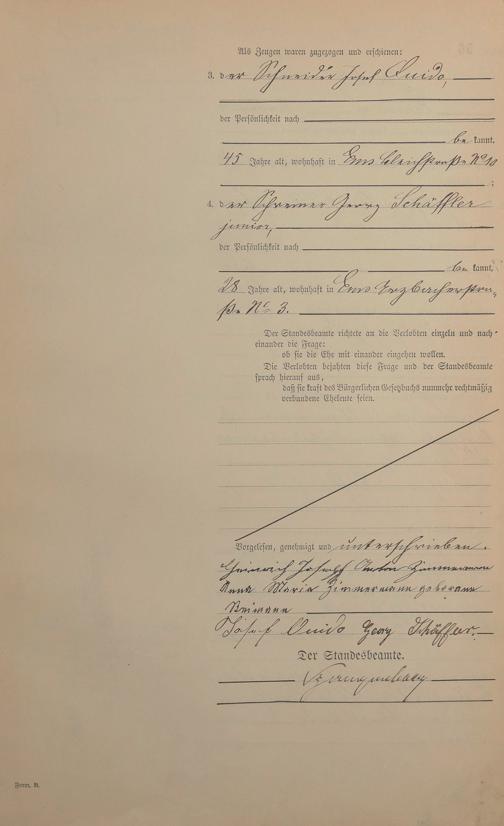 Als Zeugen waren zugezogen und erschienen:
3. der Schneider Josef Quido,
der Persönlichkeit nach
be kannt,
45 Jahre alt, wohnhaft in Ems Bleichstraße No 10
;
4. der Schreiner Georg Schäffler
junior,
der Persönlichkeit nach
be kannt,
28 Jahre alt, wohnhaft in Ems Arzbacherstra-
ße No 3.
Der Standesbeamte richtete an die Verlobten einzeln und nach-
einander die Frage:
ob sie die Ehe mit einander eingehen wollen.
Die Verlobten bejahten diese Frage und der Standesbeamte
sprach hierauf aus,
daß sie kraft des Bürgerlichen Gesetzbuchs nunmehr rechtmäßig
verbundene Eheleute seien.
Vorgelesen, genehmigt und unterschrieben.
Heinrich Joseph Anton Zimmermann
Anna Maria Zimmermann geborene
Josef Quido Georg Schäffler.
Der Standesbeamte.
Form. B.